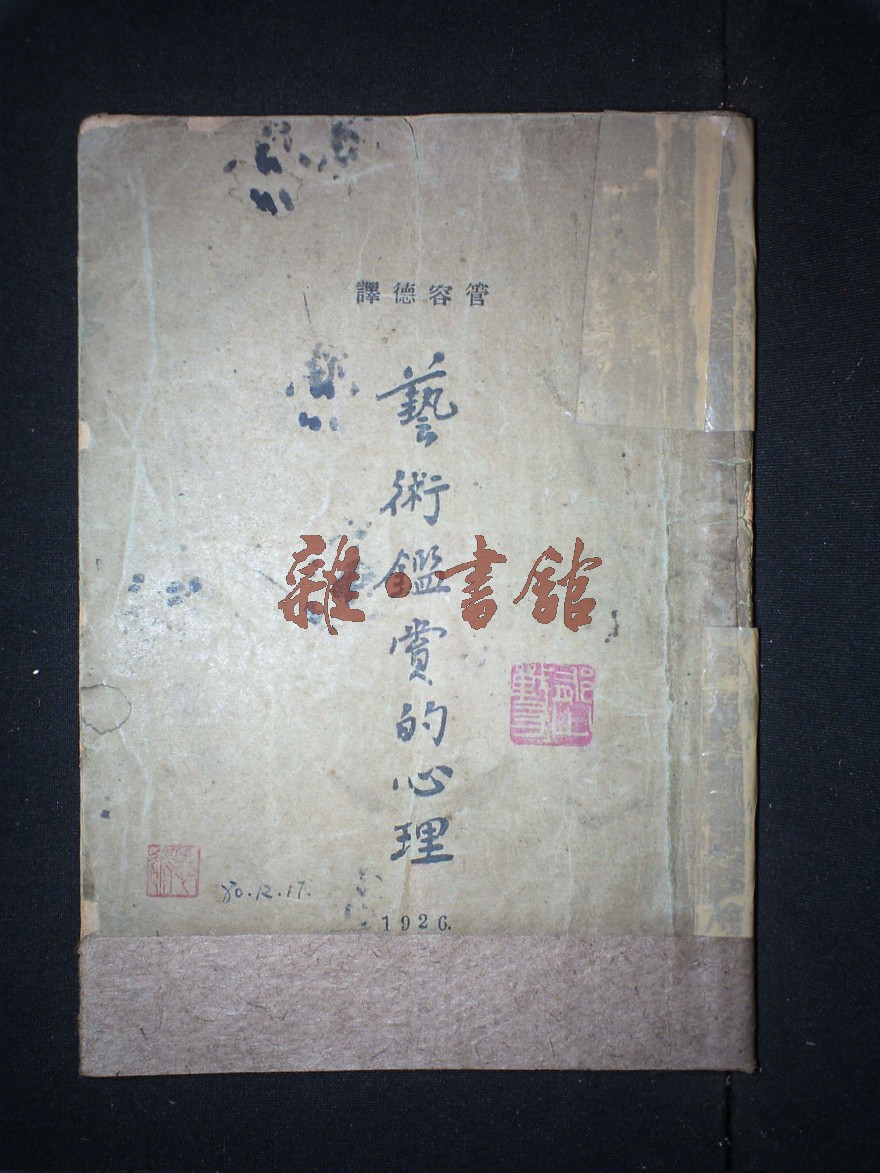 管容德譯
藝術鑑賞的心理
雜·書館
80.12.17.
1926.